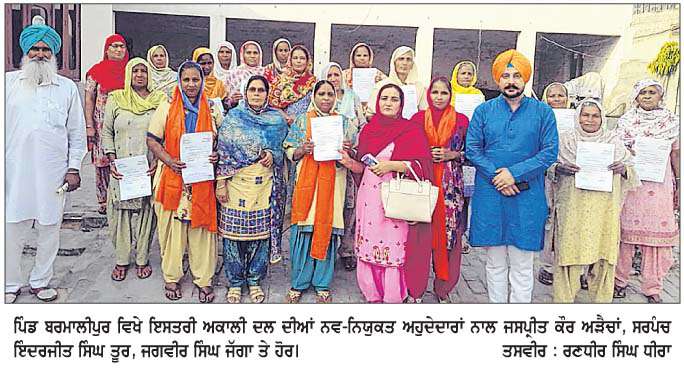 ਪਿੰਡ ਬਰਮਾਲੀਪੁਰ ਵਿਖੇ ਇਸਤਰੀ ਅਕਾਲੀ ਦਲ ਦੀਆਂ ਨਵ-ਨਿਯੁਕਤ ਅਹੁਦੇਦਾਰਾਂ ਨਾਲ ਜਸਪ੍ਰੀਤ ਕੌਰ ਅੜੈਚਾਂ, ਸਰਪੰਚ
ਇਦਰਜੀਤ ਸਿੰਘ ਤੂਰ, ਜਗਵੀਰ ਸਿੰਘ ਜੱਗਾ ਤੇ ਹੋਰ। ਤਸਵੀਰ : ਰਣਧੀਰ ਸਿੰਘ ਧੀਰਾ